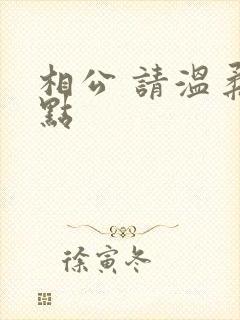 相公 請溫柔
點
徐寅冬